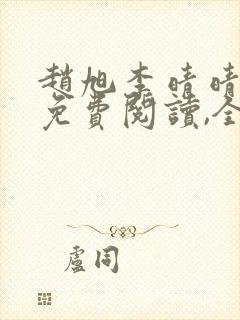 趙旭李晴晴
免費閱讀,全
盧同